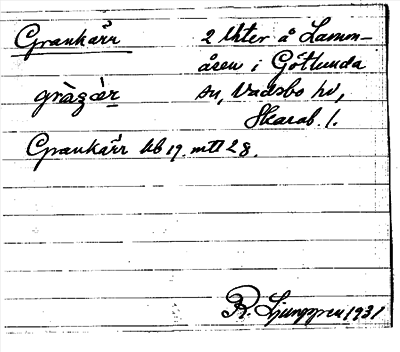 Grankärr 2 åkter å Lamm-
åsen i Götlunda
gràgær sn, Vadsbo hd,
Skarab. l.
Grankärr kb 19. mtl 28.
R. Ljunggren 1931